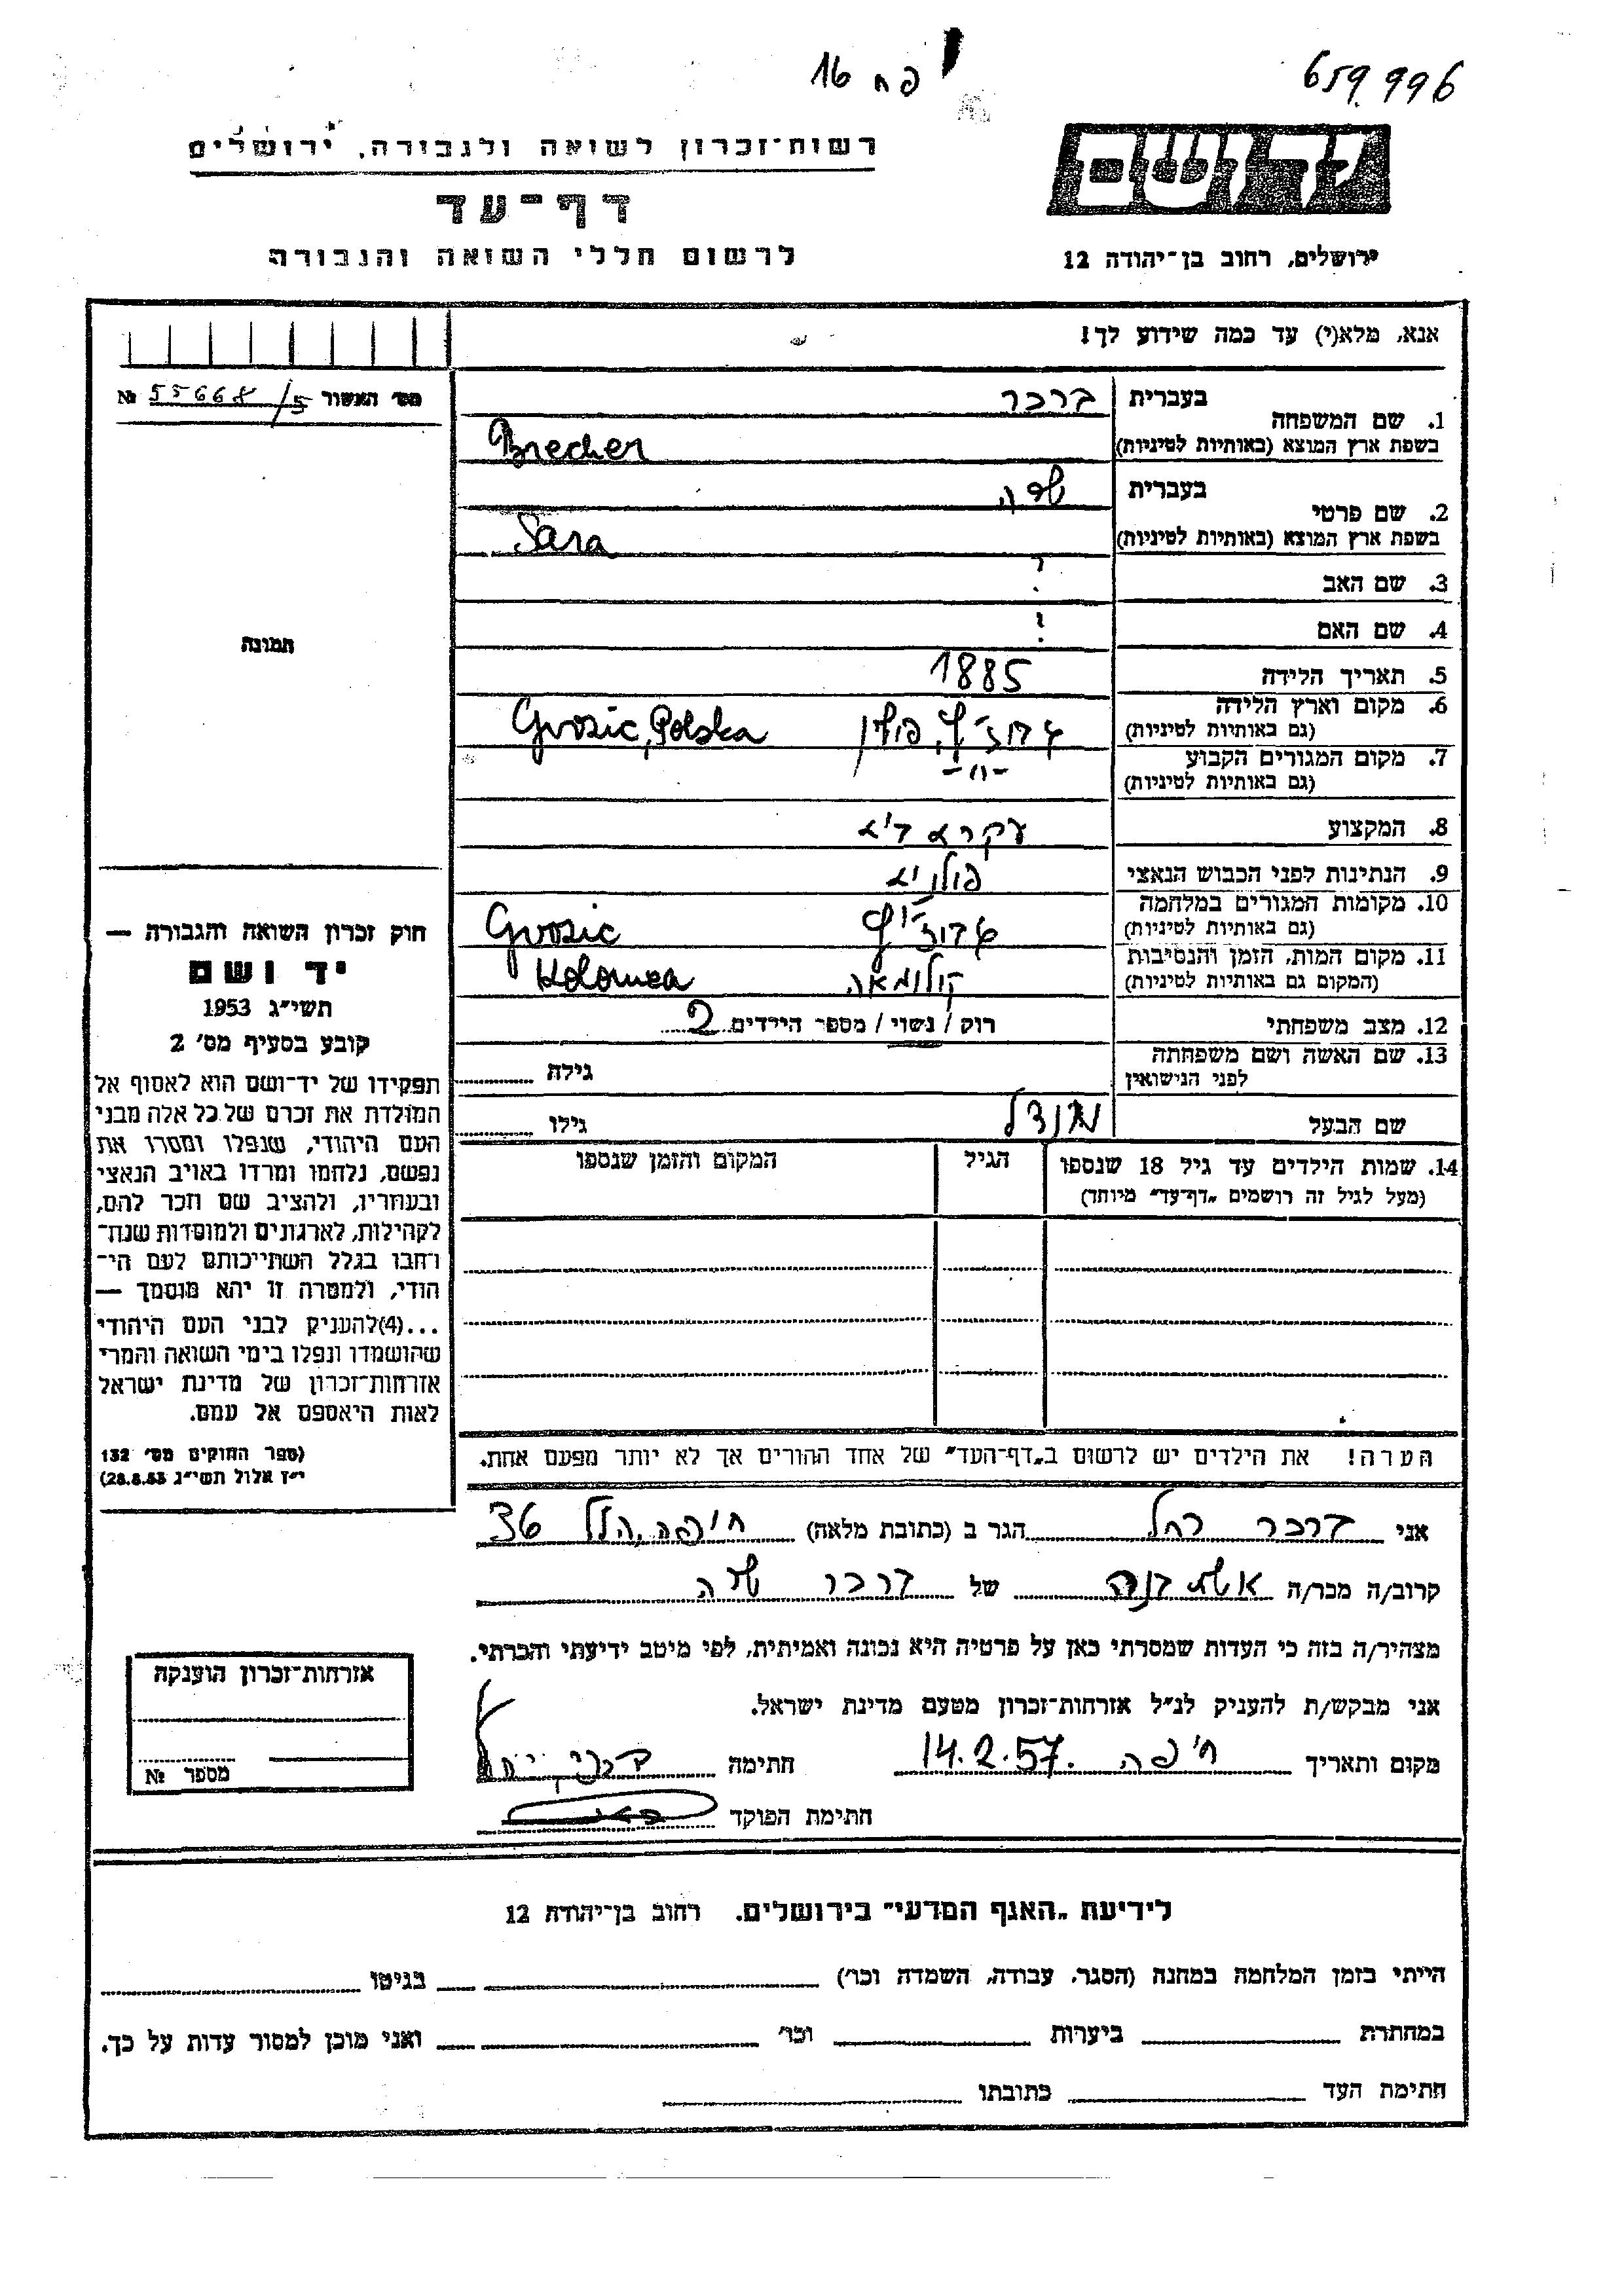 659996
16 פח
יד ושם
רשות-זכרון לשואה ולגבורה, ירושלים
דף-עד
לרשום חללי השואה והגבורה
ירושלים, רחוב בן-יהודה 12
אנא, מלא(י) עד כמה שידוע לך!
מס' האשור 55668/5 №
בעברית ברכר
1. שם המשפחה
בשפת ארץ המוצא (באותיות לטיניות) Brecher
בעברית שרה
2. שם פרטי
בשפת ארץ המוצא (באותיות לטיניות) Sara
3. שם האב ?
4. שם האם ?
תמונה
5. תאריך הלידה 1885
6. מקום וארץ הלידה
(גם באותיות לטיניות) פולין Gvozic, Polska
7. מקום המגורים הקבוע -"-
(גם באותיות לטיניות)
8. המקצוע עקרא ד'א
9. הנתינות לפני הכבוש הנאצי פולניא
10. מקומות המגורים במלחמה
(גם באותיות לטיניות) Gvozic
11. מקום המות, הזמן והנסיבות
(המקום גם באותיות לטיניות) קולומאה Kolomea
12. מצב משפחתי רוק / נשוי / מספר הילדים 2
13. שם האשה ושם משפחתה
לפני הנישואין גילה
שם הבעל מנדל גילו
14. שמות הילדים עד גיל 18 שנספו הגיל המקום והזמן שנספו
(מעל לגיל זה רושמים „דף-עד" מיוחד)
הערה! את הילדים יש לרשום ב„דף-העד" של אחד ההורים אך לא יותר מפעם אחת.
חוק זכרון השואה והגבורה —
יד ושם
תשי"ג 1953
קובע בסעיף מס' 2
תפקידו של יד-ושם הוא לאסוף אל
המולדת את זכרם של כל אלה מבני
העם היהודי, שנפלו ומסרו את
נפשם, נלחמו ומרדו באויב הנאצי
ובעוזריו, ולהציב שם וזכר להם,
לקהילות, לארגונים ולמוסדות שנח-
רחבו בגלל השתייכותם לעם הי-
הודי, ולמטרה זו יהא מוסמך —
...(4)להעניק לבני העם היהודי
שהושמדו ונפלו בימי השואה והמרי
אזרחות-זכרון של מדינת ישראל
לאות היאספם אל עמם.
(ספר החוקים מס' 132
י"ז אלול תשי"ג 28.8.53)
אני ברכר רחל הגר ב (כתובת מלאה) חיפה, הלל 36
קרוב/ה מכר/ה אשת בנה של ברכר שרה
מצהיר/ה בזה כי העדות שמסרתי כאן על פרטיה היא נכונה ואמיתית, לפי מיטב ידיעתי והכרתי.
אני מבקש/ת להעניק לנ"ל אזרחות-זכרון מטעם מדינת ישראל.
מקום ותאריך חיפה 14.2.57. חתימה
חתימת הפוקד
אזרחות-זכרון הוענקה
מספר №
לידיעת „האגף המדעי" בירושלים. רחוב בן-יהודת 12
הייתי בזמן המלחמה במחנה (הסגר, עבודה, השמדה וכו') בגיטו
במחתרת ביערות וכו' ואני מוכן למסור עדות על כך.
חתימת העד כתובתו